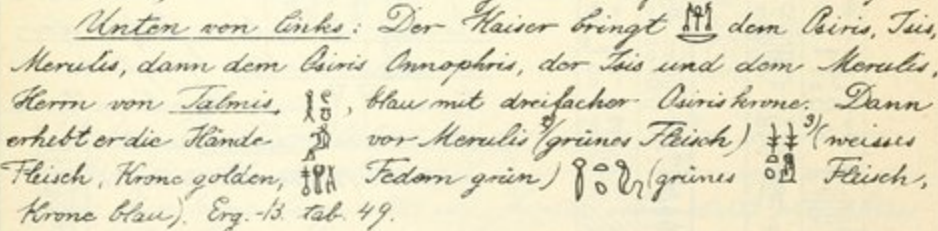 Unten von links: Der Kaiser bringt dem Osiris, Isis,
Merulis, dann dem Osiris Onnophris, der Isis und dem Merulis,
Herrn von Talmis, blau mit dreifacher Osiriskrone. Dann
erhebt er die Hände vor Merulis (grünes Fleisch) 3) (weisses
Fleisch, Krone golden, Federn grün) (grünes Fleisch,
Krone blau). Erg.-B. tab. 49.